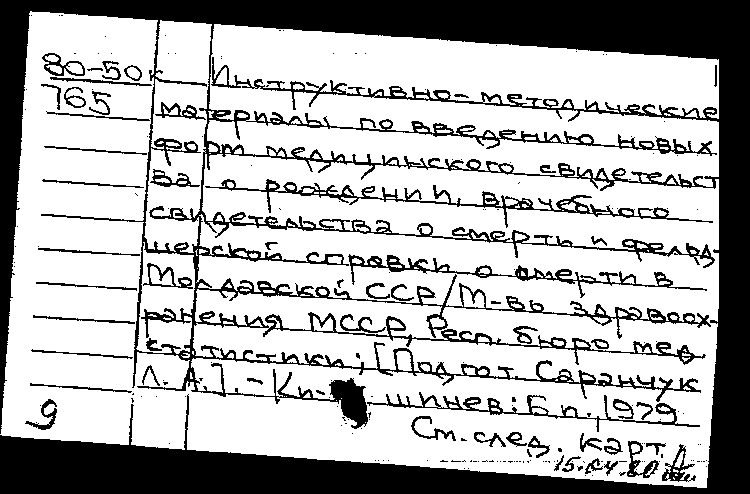 80-50к Инструктивно-методические
765 материалы по введению новых
форм медицинского свидетельст
ва о рождении, врачебного
свидетельства о смерти и фельд-
шерской справки о смерти в
Молдавской ССР/М-во здравоох-
ранения МССР, Респ. бюро мед.
статистики; [Подгот. Саранчук
Л. А.]. - Ки- шинев: Б.и., 1979
См. след. карт.
9 15.04.80